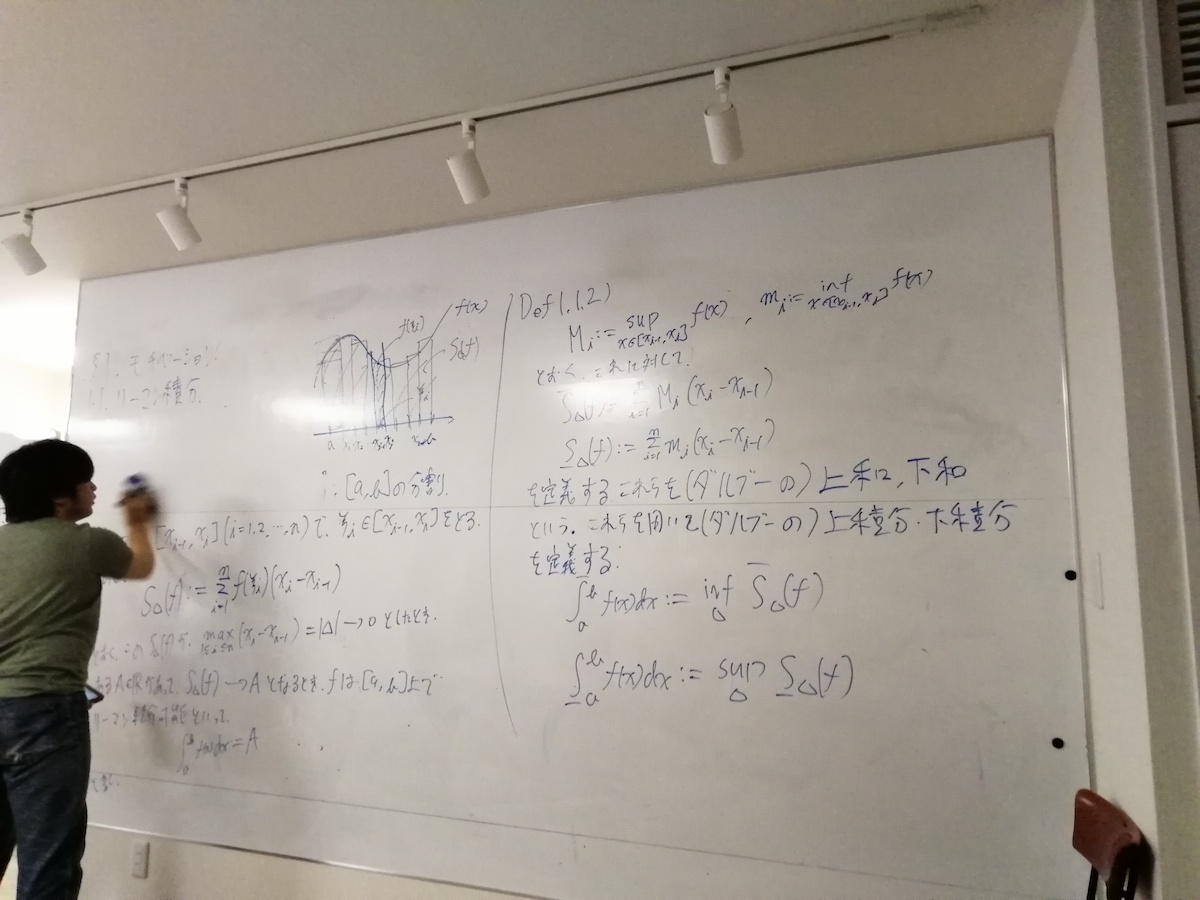 §1. モチベーション
1.1. リーマン積分.
f(x)
f(ξi)
S△(f)
ξi
a x1 x2
: [a,b]の分割.
[xi-1, xi] (i=1,2,…,n)で, ξi∈[xi-1, xi]をとる.
S△(f) := Σ_{i=1}^{n} f(ξi)(xi-xi-1)
このS△(f)が, max_{1≤i≤n}(xi-xi-1) = |△|→0としたとき.
あるA∈Rがあって, S△(f)→Aとなるとき, fは[a,b]上で
リーマン積分可能といって.
∫_a^b f(x)dx = A
と書く.
Def 1.1.2)
Mi := sup_{x∈[xi-1, xi]} f(x), mi := inf_{x∈[xi-1, xi]} f(x)
とおく. これに対して.
S̅△(f) := Σ_{i=1}^{n} Mi(xi-xi-1)
S̲△(f) := Σ_{i=1}^{n} mi(xi-xi-1)
を定義する これらを(ダルブーの)上和, 下和
という. これらを用いて(ダルブーの)上積分. 下積分
を定義する:
∫̅_a^b f(x)dx := inf_△ S̅△(f)
∫̲_a^b f(x)dx := sup_△ S̲△(f)